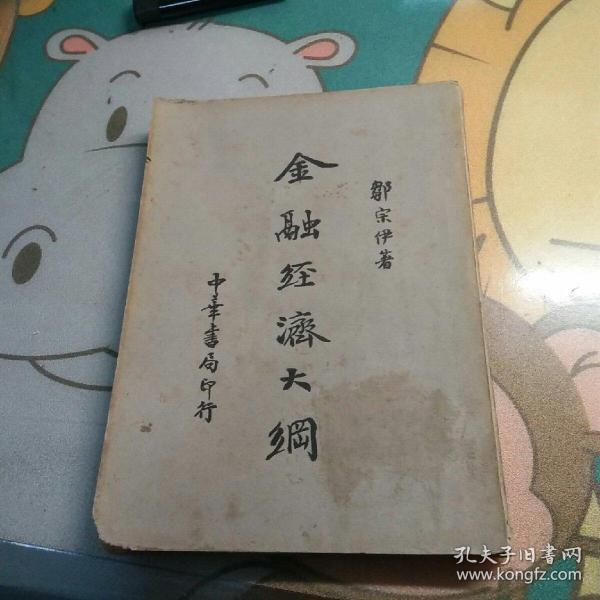 鄒宗伊著
金融經濟大綱
中華書局印行
孔夫子旧书网
www.kongfz.com